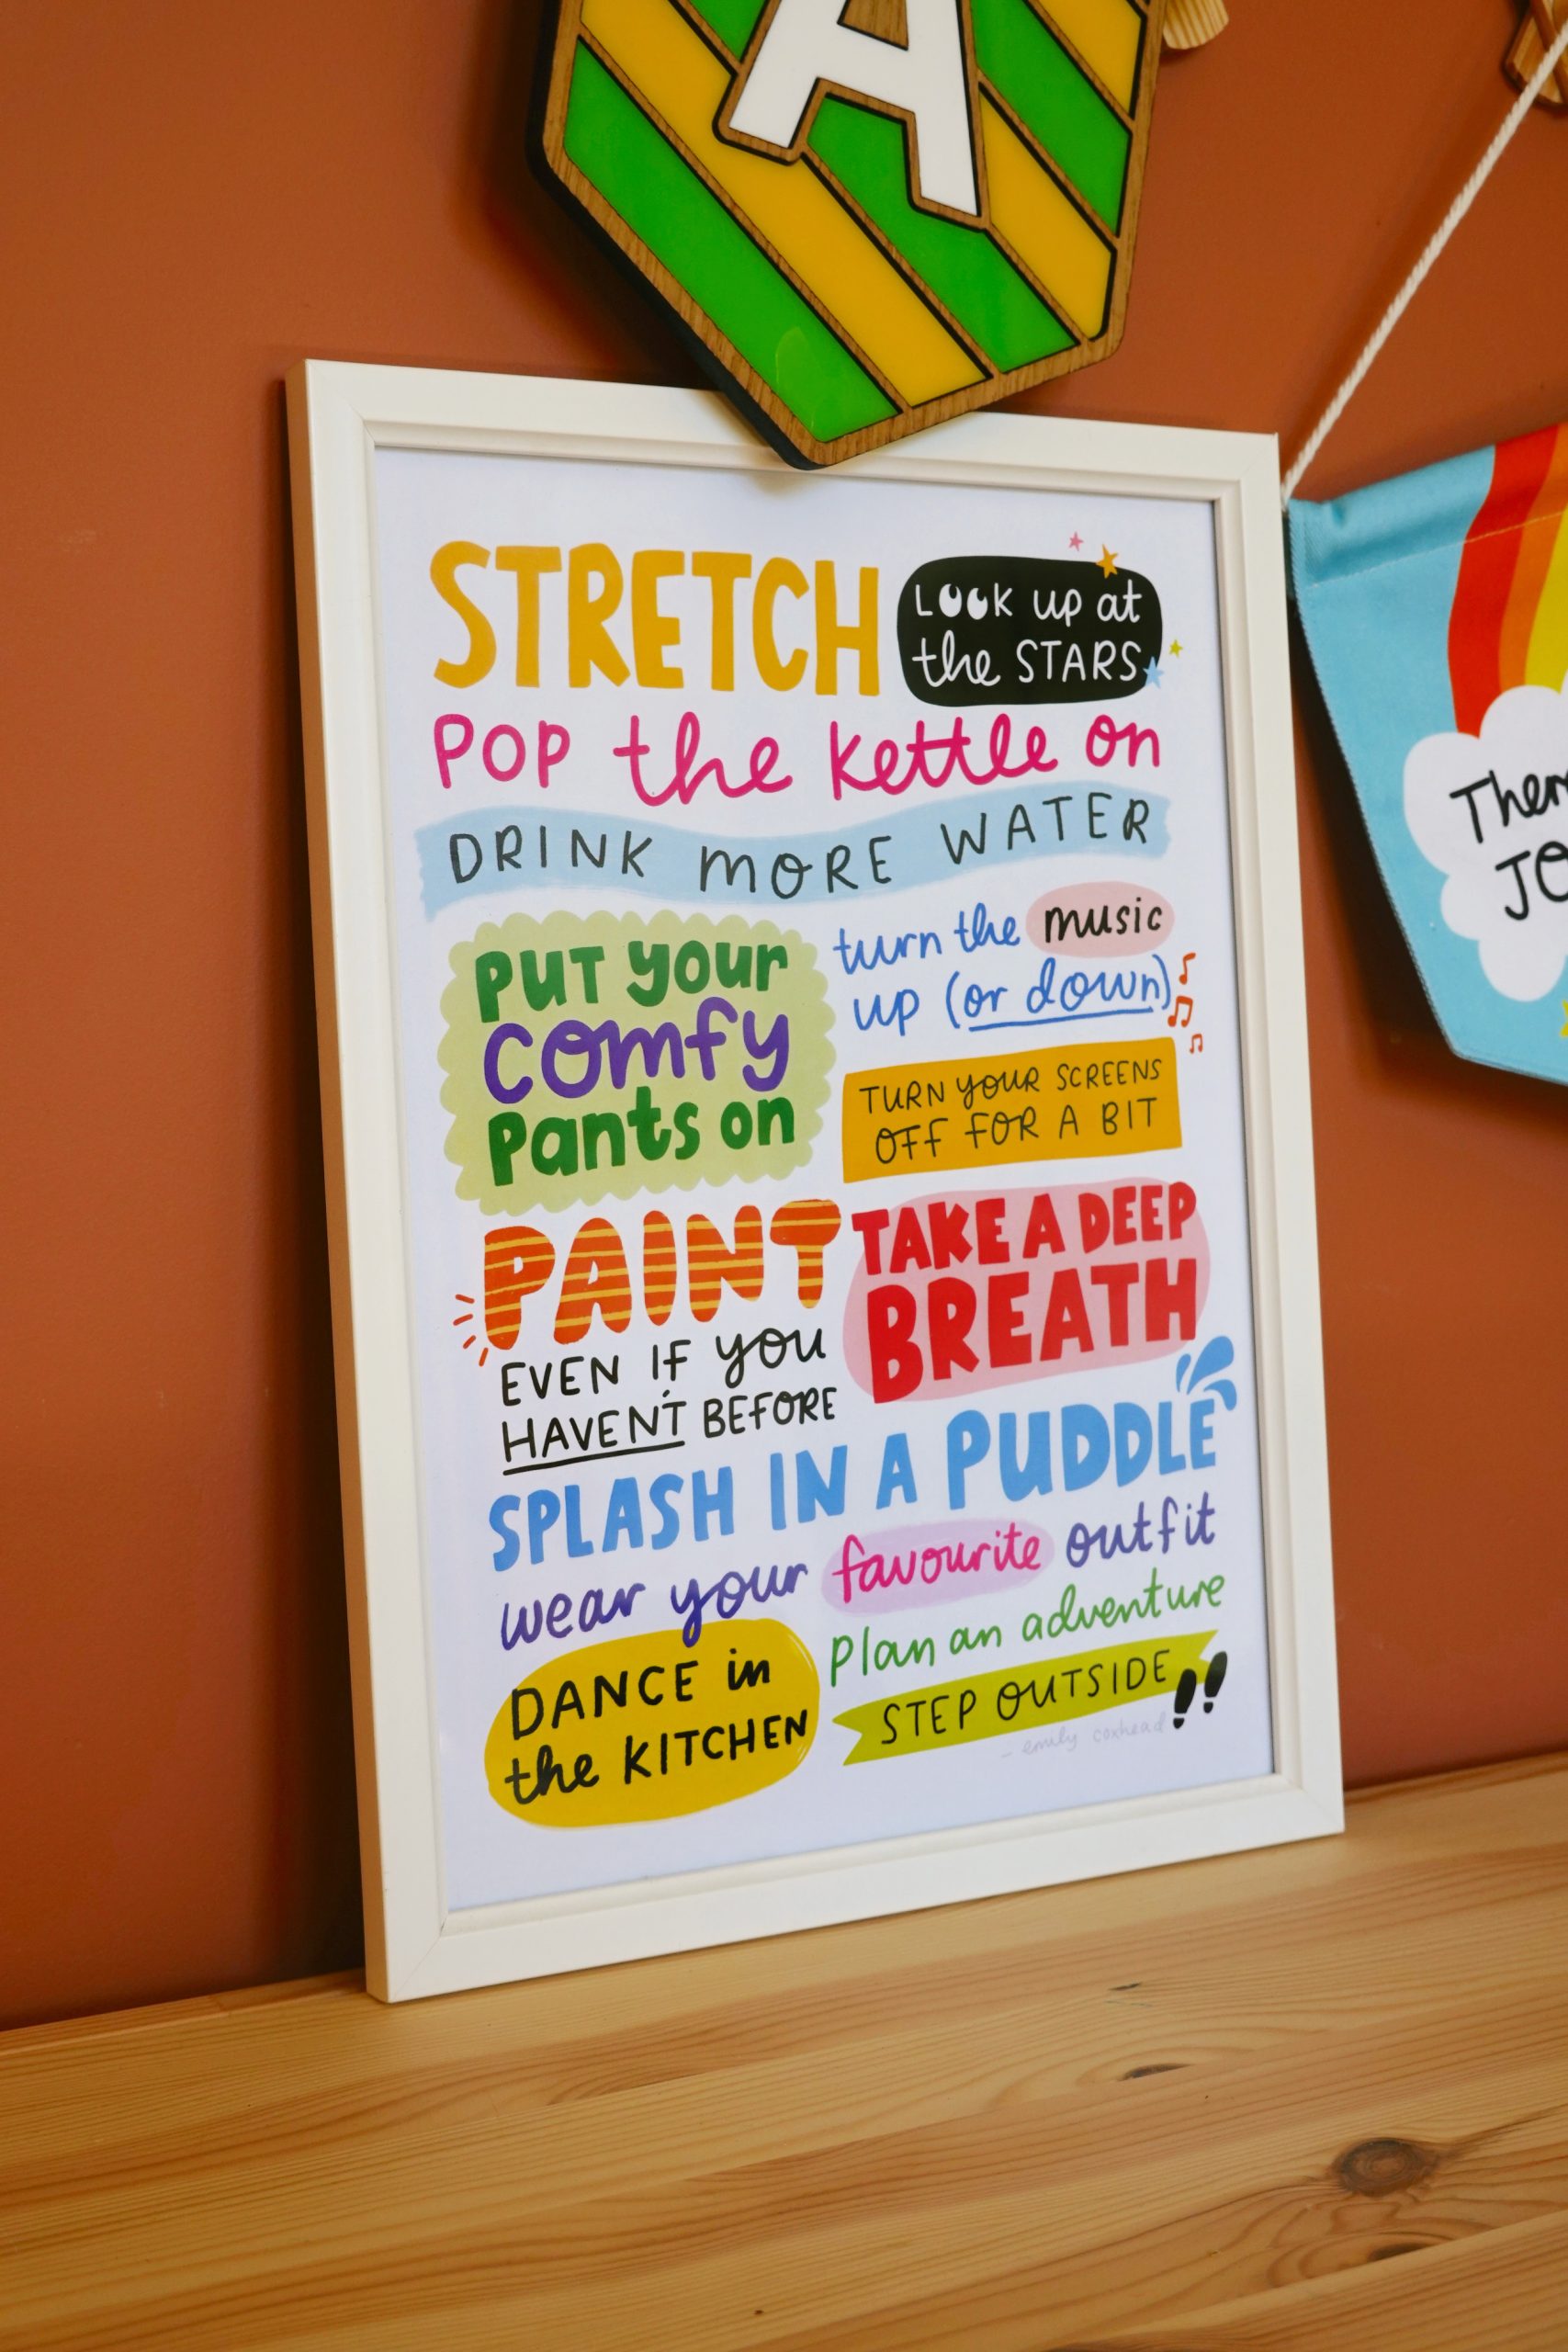 A
STRETCH
LOOK up at
the STARS
POP the kettle on
DRINK MORE WATER
PUT your
comfy
pants on
turn the music
up (or down)
TURN YOUR SCREENS
OFF FOR A BIT
PAINT
EVEN IF you
HAVEN'T BEFORE
TAKE A DEEP
BREATH
SPLASH IN A PUDDLE
wear your favourite outfit
DANCE in
the KITCHEN
plan an adventure
STEP OUTSIDE
- emily coxhead